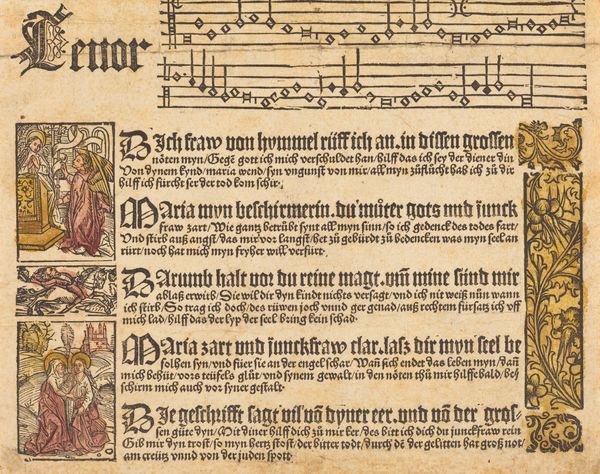 Tenor
DIch fraw von hymmel rüff ich an. in dissen grossen
nöten myn/Gegē gott ich mich verschuldet han/hilff das ich sey der diener din
Von dynem kynd/maria wend/syn vngunst von mir/all myn züflücht hab ich zü dir
hilff ich fürcht ser der tod kom schir.
MAria myn beschirmerin. du müter gots vnd junck
fraw zart/Wie gantz betrübt synt all myn sinn/so ich gedenck des todes fart/
Vnd stirb auß angst/das mir vor langst/het zü gebürdt zü bedencken was myn seel an
rürt/noch hat mich myn fryher will verfürt.
DArumb halt vor du reine magt. vm̄ mine sünd mir
ablaß erwirb/Sie wil dir dyn kindt nichts versagt/vnd ich nit weiß nün wann
ich stirb/So trag ich doch/des rüwen joch vnnd ger genad/auß rechtem fürsatz ich off
mich lad/hilff das der lyp der seel bring kein schad.
MAria zart vnd junckfraw clar. lasz dir myn seel be
folhen syn/vnd füer sie an der engel schar/Wañ sich ender das leben myn/dañ
mich behüt/vors teüfels glüt/vnd synem gewalt/in den nöten thü mir hilffe bald/bes
schirm mich auch vor syner gestalt.
DIe geschrifft sagt vil vō dyner eer. vnd vō der gros-
sen güte dyn/Mit diner hilff dich zü mir ker/des bitt ich dich du junckfraw rein
Gib mir dyn trost/so myn hertz stost/der bitter todt/durch dē der gelitten hat groß not/
am creütz vnnd von der juden spott.